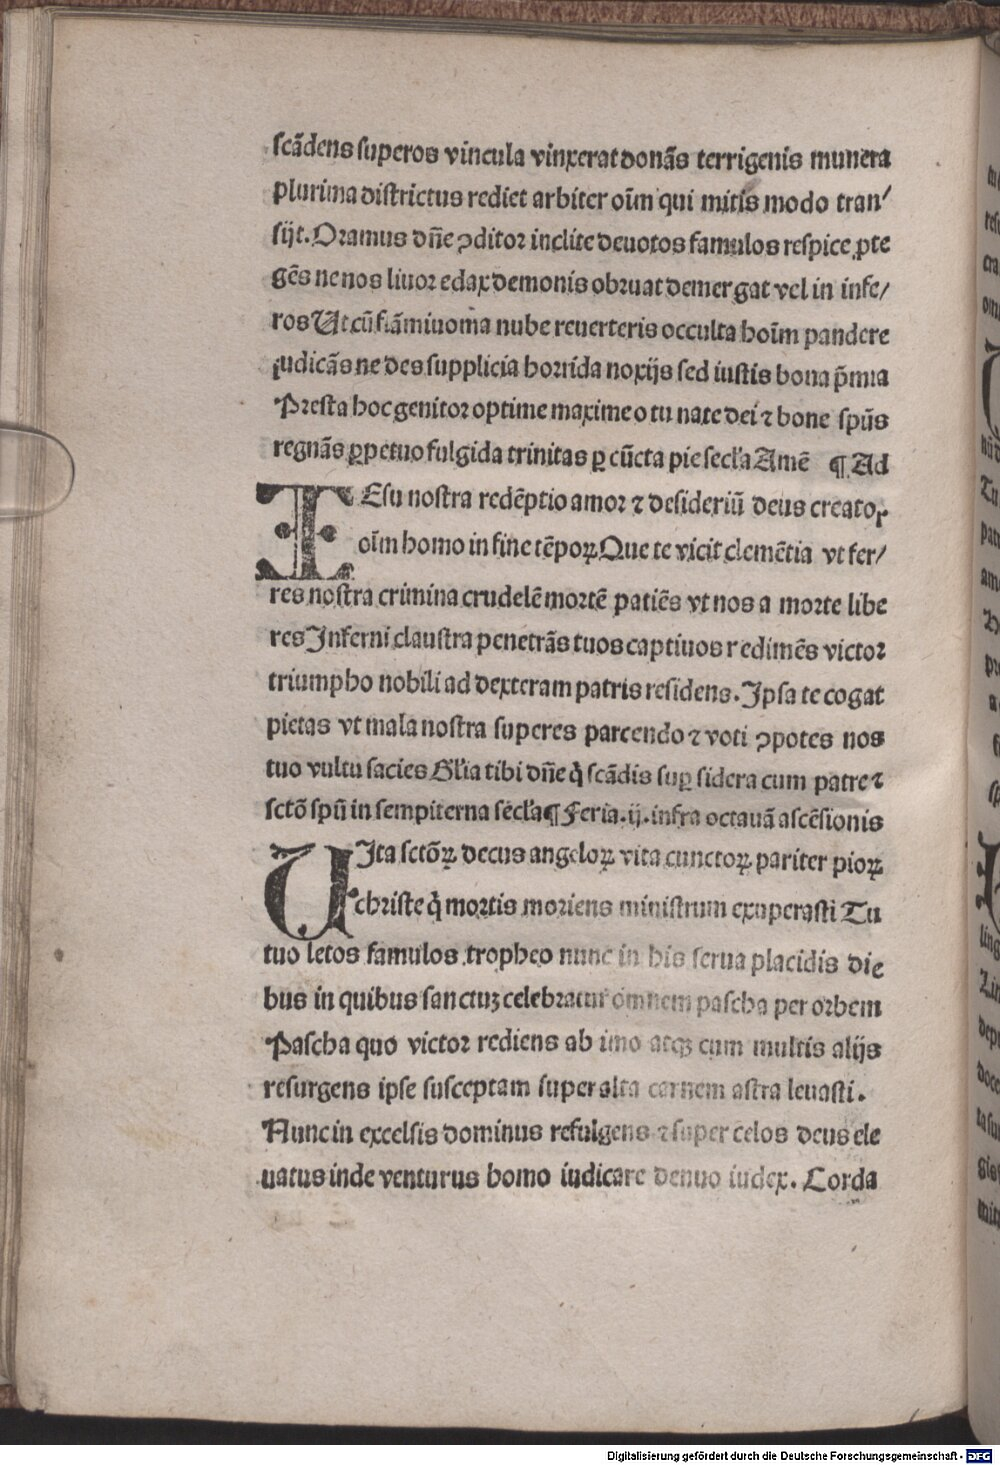 scãdens superos vincula vinxerat donãs terrigenis munera
plurima districtus rediet arbiter oĩm qui mitis modo tran⸗
sijt. Oramus dñe ꝯditor inclite deuotos famulos respice ꝓte
gẽs ne nos liuor edax demonis obruat demergat vel in infe⸗
ros Ut cũ flãmiuoma nube reuerteris occulta hoĩm pandere
iudicãs ne des supplicia horrida noxijs sed iustis bona p̃mia
Presta hoc genitor optime maxime o tu nate dei ⁊ bone spũs
regnãs ꝑpetuo fulgida trinitas ꝑ cũcta pie secl'a Amẽ ¶ Ad
IEsu nostra redẽptio amor ⁊ desideriũ deus creator
oĩm homo in fine tẽpoꝝ Que te vicit clemẽtia vt fer⸗
res nostra crimina crudelẽ mortẽ patiẽs vt nos a morte libe
res Inferni claustra penetrãs tuos captiuos redimẽs victor
triumpho nobili ad dexteram patris residens. Ipsa te cogat
pietas vt mala nostra superes parcendo ⁊ voti ꝯpotes nos
tuo vultu sacies Gl'ia tibi dñe q̇ scãdis suꝑ sidera cum patre ⁊
sctõ spũ in sempiterna secl'a ¶ Feria. ij. infra octauã ascẽsionis
UIta sctõꝝ decus angeloꝝ vita cunctoꝝ pariter pioꝝ
christe q̇ mortis moriens ministrum exuperasti Tu
tuo letos famulos tropheo nunc in his serua placidis die
bus in quibus sanctuꝫ celebratur omnem pascha per orbem
Pascha quo victor rediens ab imo atqꝫ cum multis alijs
resurgens ipse susceptam super alta carnem astra leuasti.
Nunc in excelsis dominus refulgens ⁊ super celos deus ele
uatus inde venturus homo iudicare denuo iudex. Corda
Digitalisierung gefördert durch die Deutsche Forschungsgemeinschaft - DFG